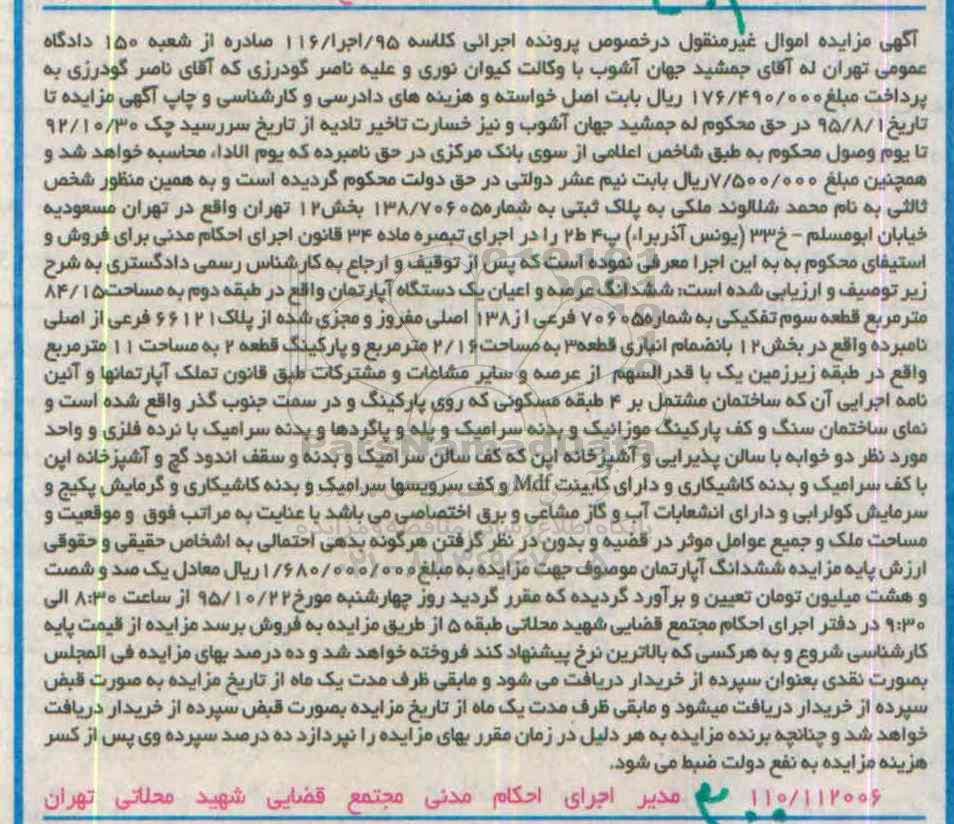 آگهی مزایده اموال غیرمنقول درخصوص پرونده اجرائی کلاسه ۹۵/اجرا/۱۱۶ صادره از شعبه ۱۵۰ دادگاه
عمومی تهران له آقای جمشید جهان آشوب با وکالت کیوان نوری و علیه ناصر گودرزی که آقای ناصر گودرزی به
پرداخت مبلغ ۱۷۶/۴۹۰/۰۰۰ ریال بابت اصل خواسته و هزینه های دادرسی و کارشناسی و چاپ آگهی مزایده تا
تاریخ ۹۵/۸/۱ در حق محکوم له جمشید جهان آشوب و نیز خسارت تاخیر تادیه از تاریخ سررسید چک ۹۲/۱۰/۳۰
تا یوم وصول محکوم به طبق شاخص اعلامی از سوی بانک مرکزی در حق نامبرده که یوم الاداء محاسبه خواهد شد و
همچنین مبلغ ۷/۵۰۰/۰۰۰ریال بابت نیم عشر دولتی در حق دولت محکوم گردیده است و به همین منظور شخص
ثالثی به نام محمد شلالوند ملکی به پلاک ثبتی به شماره۱۳۸/۷۰۶۰۵ بخش۱۲ تهران واقع در تهران مسعودیه
خیابان ابومسلم - خ۳۳ (یونس آذربرا) پ۴ ط۲ را در اجرای تبصره ماده ۳۴ قانون اجرای احکام مدنی برای فروش و
استیفای محکوم به به این اجرا معرفی نموده است که پس از توقیف و ارجاع به کارشناس رسمی دادگستری به شرح
زیر توصیف و ارزیابی شده است: ششدانگ عرصه و اعیان یک دستگاه آپارتمان واقع در طبقه دوم به مساحت۸۴/۱۵
مترمربع قطعه سوم تفکیکی به شماره۷۰۶۰۵ فرعی از۱۳۸ اصلی مفروز و مجزی شده از پلاک۶۶۱۲۱ فرعی از اصلی
نامبرده واقع در بخش۱۲ بانضمام انباری قطعه۳ به مساحت۲/۱۶ مترمربع و پارکینگ قطعه ۲ به مساحت ۱۱ مترمربع
واقع در طبقه زیرزمین یک با قدرالسهم از عرصه و سایر مشاعات و مشترکات طبق قانون تملک آپارتمانها و آئین
نامه اجرایی آن که ساختمان مشتمل بر ۴ طبقه مسکونی که روی پارکینگ و در سمت جنوب گذر واقع شده است و
نمای ساختمان سنگ و کف پارکینگ موزائیک و بدنه سرامیک و پله و پاگردها و بدنه سرامیک با نرده فلزی و واحد
مورد نظر دو خوابه با سالن پذیرایی و آشپزخانه اپن که کف سالن سرامیک و بدنه و سقف اندود گچ و آشپزخانه اپن
با کف سرامیک و بدنه کاشیکاری و دارای کابینت Mdf و کف سرویسها سرامیک و بدنه کاشیکاری و گرمایش پکیج و
سرمایش کولرابی و دارای انشعابات آب و گاز مشاعی و برق اختصاصی می باشد با عنایت به مراتب فوق و موقعیت و
مساحت ملک و جمیع عوامل موثر در قضیه و بدون در نظر گرفتن هرگونه بدهی احتمالی به اشخاص حقیقی و حقوقی
ارزش پایه مزایده ششدانگ آپارتمان موصوف جهت مزایده به مبلغ۱/۶۸۰/۰۰۰/۰۰۰ریال معادل یک صد و شصت
و هشت میلیون تومان تعیین و برآورد گردیده که مقرر گردید روز چهارشنبه مورخ۹۵/۱۰/۲۲ از ساعت ۸:۳۰ الی
۹:۳۰ در دفتر اجرای احکام مجتمع قضایی شهید محلاتی طبقه ۵ از طریق مزایده به فروش برسد مزایده از قیمت پایه
کارشناسی شروع و به هرکسی که بالاترین نرخ پیشنهاد کند فروخته خواهد شد و ده درصد بهای مزایده فی المجلس
بصورت نقدی بعنوان سپرده از خریدار دریافت می شود و مابقی ظرف مدت یک ماه از تاریخ مزایده به صورت قبض
سپرده از خریدار دریافت میشود و مابقی ظرف مدت یک ماه از تاریخ مزایده بصورت قبض سپرده از خریدار دریافت
خواهد شد و چنانچه برنده مزایده به هر دلیل در زمان مقرر بهای مزایده را نپردازد ده درصد سپرده وی پس از کسر
هزینه مزایده به نفع دولت ضبط می شود.
۱۱۰/۱۱۲۰۰۶ مدیر اجرای احکام مدنی مجتمع قضایی شهید محلاتی تهران